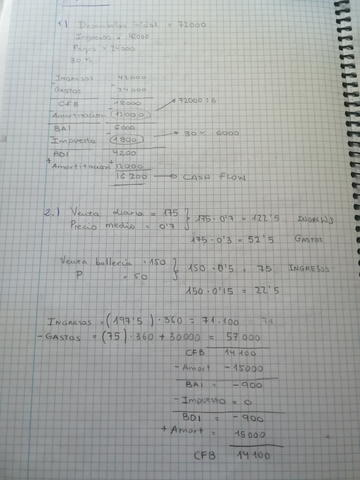 1) Desembolso inicial = 72000
Ingresos = 42000
Pagos = 24000
30 %
Ingresos 42000
- Gastos - 24000
CFB 18000
- Amortización (12000) → 72000 : 6
BAI 6000
Impuesto (1800) → 30% 6000
BDI 4200
+ Amortización + 12000
16200 → CASH FLOW
2.) Venta diaria = 175 } 175 · 0'7 = 122'5 INGRESOS
Precio medio = 0'7
175 · 0'3 = 52'5 GASTOS
Venta bollería = 150 } 150 · 0'5 = 75 INGRESOS
P = 50
150 · 0'15 = 22'5
INGRESOS = (197'5) · 360 = 71.100
- GASTOS = (75) · 360 + 30000 = 57000
CFB 14100
- Amort - 15000
BAI = - 900
- Impuesto = 0
BDI = - 900
+ Amort = 15000
CFB 14100